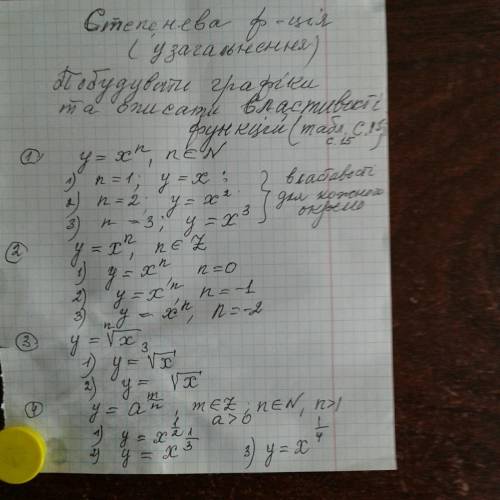 Степенева ф-ція
(узагальнення)
Побудувати графіки
та вписати властивості
функцій (табл. с.
с. 15
① y = xⁿ, n ∈ N
1) n = 1; y = x;
2) n = 2; y = x²
3) n = 3; y = x³
властивості
для кожного
окремо
② y = xⁿ, n ∈ Z
1) y = xⁿ, n = 0
2) y = xⁿ, n = -1
3) y = xⁿ, n = -2
③ y = ⁿ√x
1) y = √x
2) y = ³√x
④ y = a^(m/n), m ∈ Z, n ∈ N, n > 1
a > 0
1) y = x^(1/2)
2) y = x^(1/3) 3) y = x^(1/4)